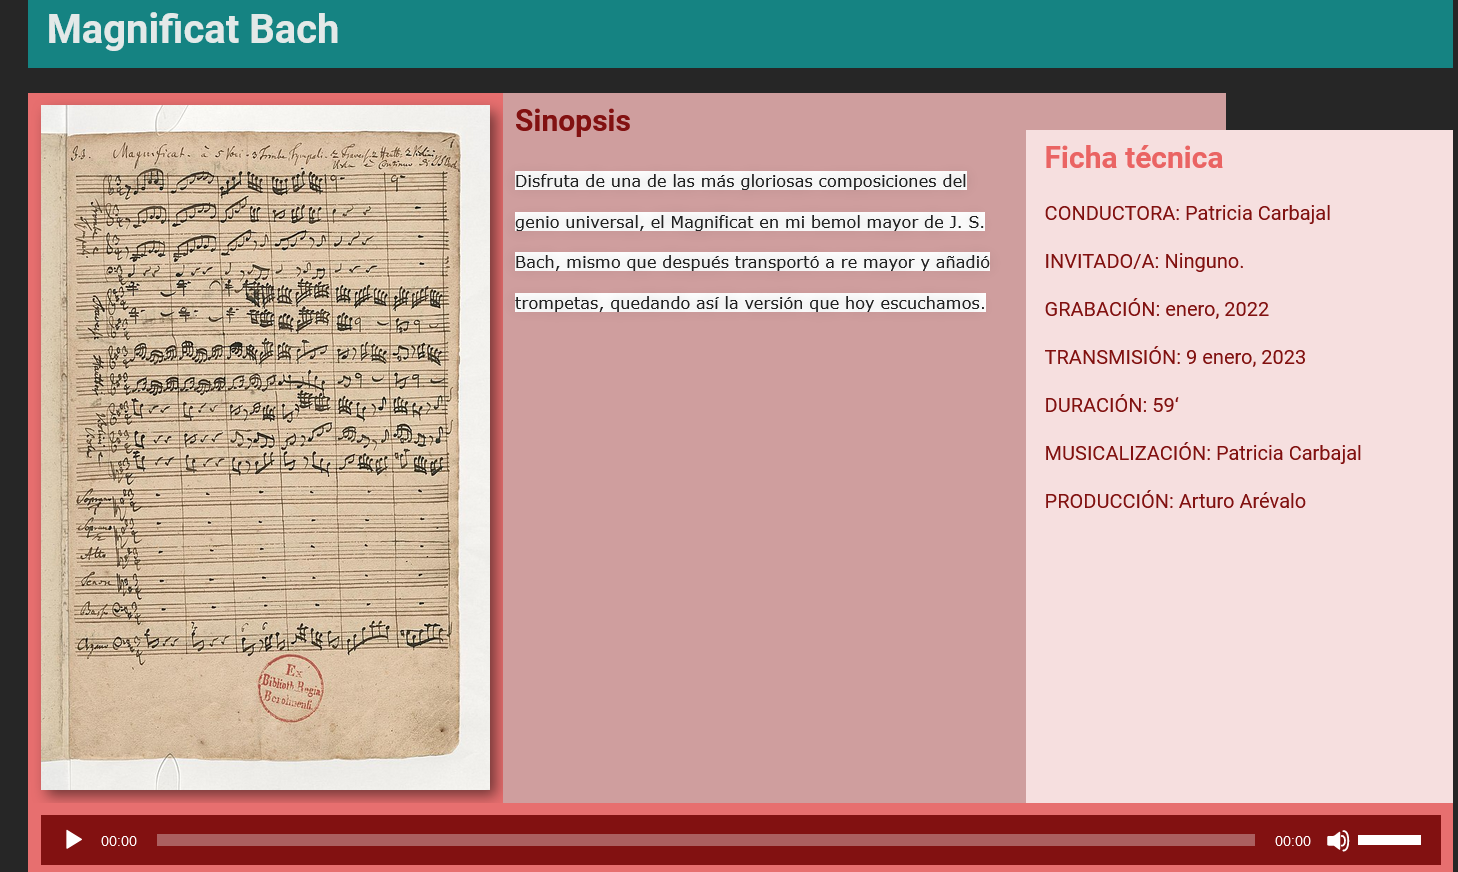 Magnificat Bach
Magnificat. à 5 Voci.
Soprano
Soprano
Alto
Tenore
Basso
Organo
Ex
Biblioth. Regia
Berolinensi.
Sinopsis
Disfruta de una de las más gloriosas composiciones del
genio universal, el Magnificat en mi bemol mayor de J. S.
Bach, mismo que después transportó a re mayor y añadió
trompetas, quedando así la versión que hoy escuchamos.
Ficha técnica
CONDUCTORA: Patricia Carbajal
INVITADO/A: Ninguno.
GRABACIÓN: enero, 2022
TRANSMISIÓN: 9 enero, 2023
DURACIÓN: 59‘
MUSICALIZACIÓN: Patricia Carbajal
PRODUCCIÓN: Arturo Arévalo
00:00
00:00